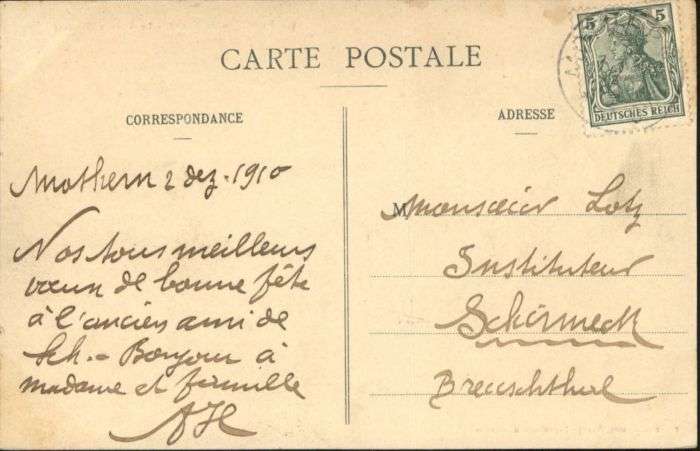 CARTE POSTALE
5 5
DEUTSCHES REICH
CORRESPONDANCE
Mothern 2 dez. 1910
Nos tous meilleurs
vœux de bonne fête
à l'ancien ami de
Sch. - Bonjour à
madame et famille
AH
ADRESSE
M Monsieur Lotz
Instituteur
Schirmeck
Breuschthal